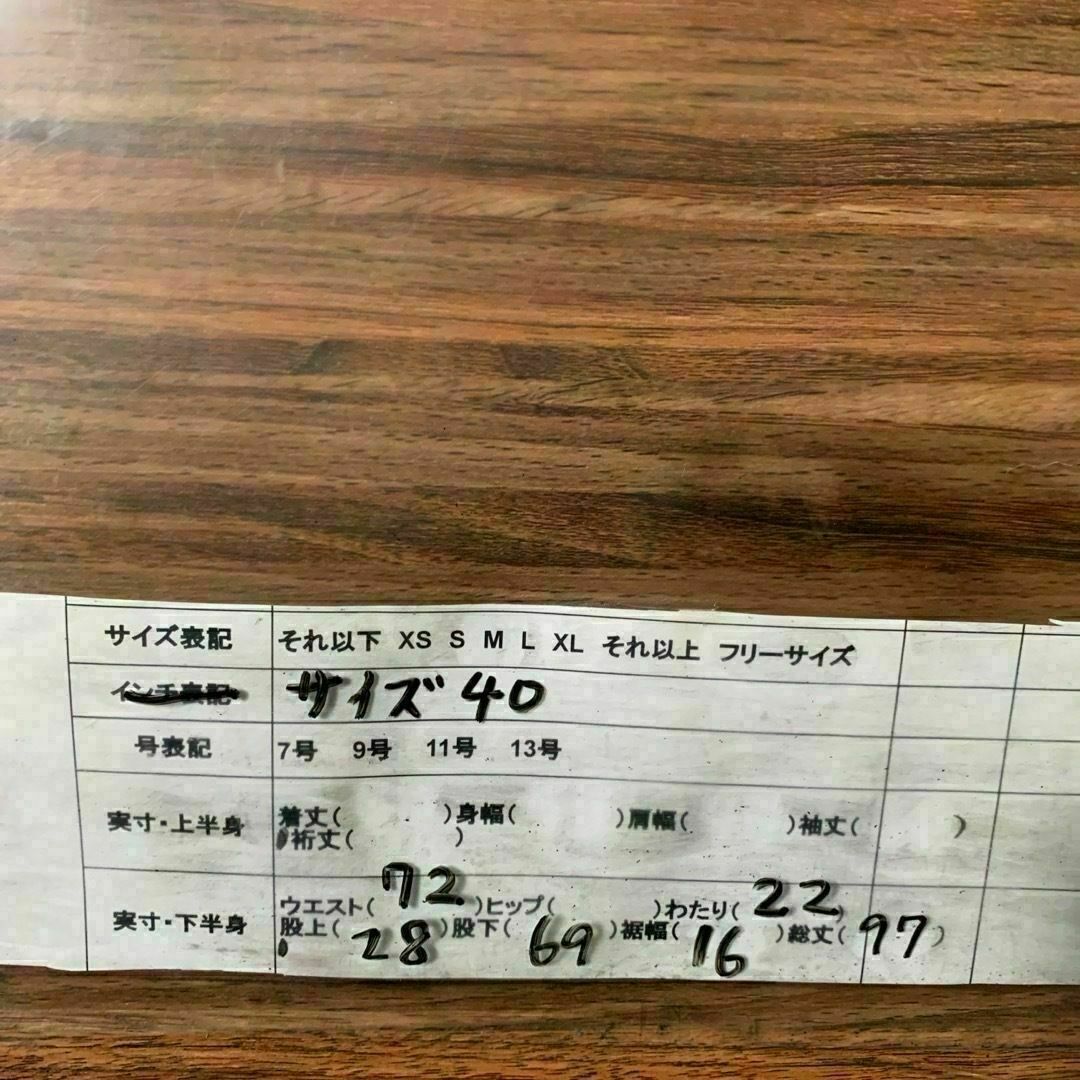 サイズ表記 それ以下 XS S M L XL それ以上 フリーサイズ
インチ表記 サイズ 40
号表記 7号 9号 11号 13号
実寸・上半身 着丈( )身幅( )肩幅( )袖丈( )
裄丈( )
実寸・下半身 ウエスト( 72 )ヒップ( )わたり( 22 )
股上( 28 )股下( 69 )裾幅( 16 )総丈( 97 )